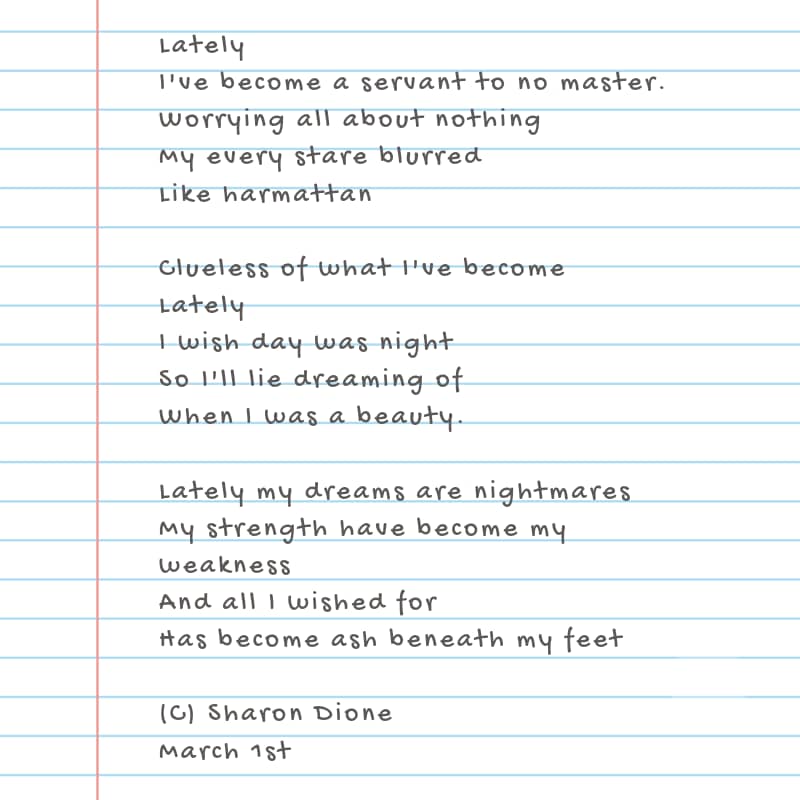 Lately
I've become a servant to no master.
Worrying all about nothing
My every stare blurred
Like harmattan
Clueless of what I've become
Lately
I wish day was night
So I'll lie dreaming of
When I was a beauty.
Lately my dreams are nightmares
My strength have become my
weakness
And all I wished for
Has become ash beneath my feet
(C) Sharon Dione
March 1st